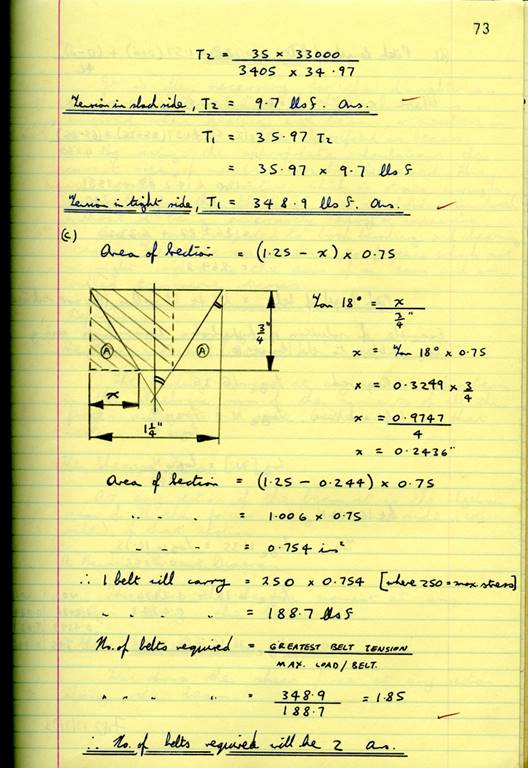 73
T₂ = 35 × 33000
3405 × 34.97
Tension in slack side, T₂ = 9.7 lbs f. Ans.
T₁ = 35.97 T₂
= 35.97 × 9.7 lbs f
Tension in tight side, T₁ = 348.9 lbs f. Ans.
(c)
Area of Section = (1.25 - x) × 0.75
A A
3/4"
x
1 1/4"
Tan 18° = x
3/4"
x = Tan 18° × 0.75
x = 0.3249 × 3/4
x = 0.9747
4
x = 0.2436"
Area of Section = (1.25 - 0.244) × 0.75
" " " = 1.006 × 0.75
" " " = 0.754 ins²
∴ 1 belt will carry = 250 × 0.754 [where 250 = max stress]
" " " = 188.7 lbs f
No. of belts required = GREATEST BELT TENSION
MAX. LOAD/BELT.
" " " " = 348.9 = 1.85
188.7
∴ No. of belts required will be 2 ans.